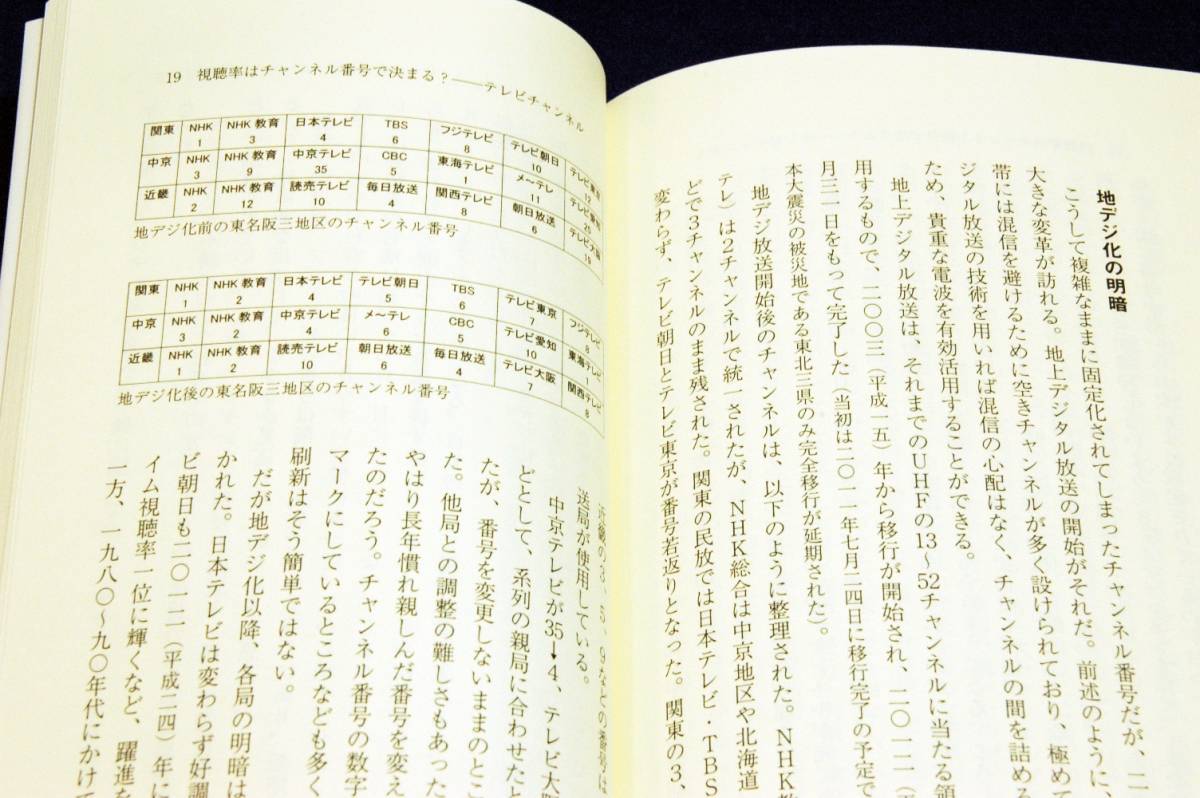 地デジ化の明暗
こうして複雑なままに固定化されてしまったチャンネル番号だが、二
大きな変革が訪れる。地上デジタル放送の開始がそれだ。前述のように、
帯には混信を避けるために空きチャンネルが多く設けられており、極めて
ジタル放送の技術を用いれば混信の心配はなく、チャンネルの間を詰める
ため、貴重な電波を有効活用することができる。
地上デジタル放送は、それまでのUHFの13〜52チャンネルに当たる領
用するもので、二〇〇三(平成一五)年から移行が開始され、二〇一二(平
月三一日をもって完了した(当初は二〇一一年七月二四日に移行完了の予定で
本大震災の被災地である東北三県のみ完全移行が延期された)。
地デジ放送開始後のチャンネルは、以下のように整理された。NHK教
テレ)は2チャンネルで統一されたが、NHK総合は中京地区や北海道
どで3チャンネルのまま残された。関東の民放では日本テレビ・TBS
変わらず、テレビ朝日とテレビ東京が番号若返りとなった。関東の3、
19 視聴率はチャンネル番号で決まる?――テレビチャンネル
関東 NHK 1 NHK 教育 3 日本テレビ 4 TBS 6 フジテレビ 8 テレビ朝日 10 テレビ東京 12
中京 NHK 3 NHK 教育 9 中京テレビ 35 CBC 5 東海テレビ 1 メ〜テレ 11 テレビ愛知 25
近畿 NHK 2 NHK 教育 12 読売テレビ 10 毎日放送 4 関西テレビ 8 朝日放送 6 テレビ大阪 19
地デジ化前の東名阪三地区のチャンネル番号
関東 NHK 1 NHK 教育 2 日本テレビ 4 テレビ朝日 5 TBS 6 テレビ東京 7 フジテレビ 8
中京 NHK 3 NHK 教育 2 中京テレビ 4 メ〜テレ 6 CBC 5 テレビ愛知 10 東海テレビ
近畿 NHK 1 NHK 教育 2 読売テレビ 10 朝日放送 6 毎日放送 4 テレビ大阪 7 関西テレビ 8
地デジ化後の東名阪三地区のチャンネル番号
近畿の3、5、9などの番号は
送局が使用している。
中京テレビが35→4、テレビ大阪
どとして、系列の親局に合わせたと
たが、番号を変更しないままのとこ
た。他局との調整の難しさもあった
やはり長年慣れ親しんだ番号を変え
たのだろう。チャンネル番号の数字
マークにしているところなども多く
刷新はそう簡単ではない。
だが地デジ化以降、各局の明暗は
かれた。日本テレビは変わらず好調
ビ朝日も二〇一二(平成二四)年に
イム視聴率一位に輝くなど、躍進を
一方、一九八〇〜九〇年代にかけて